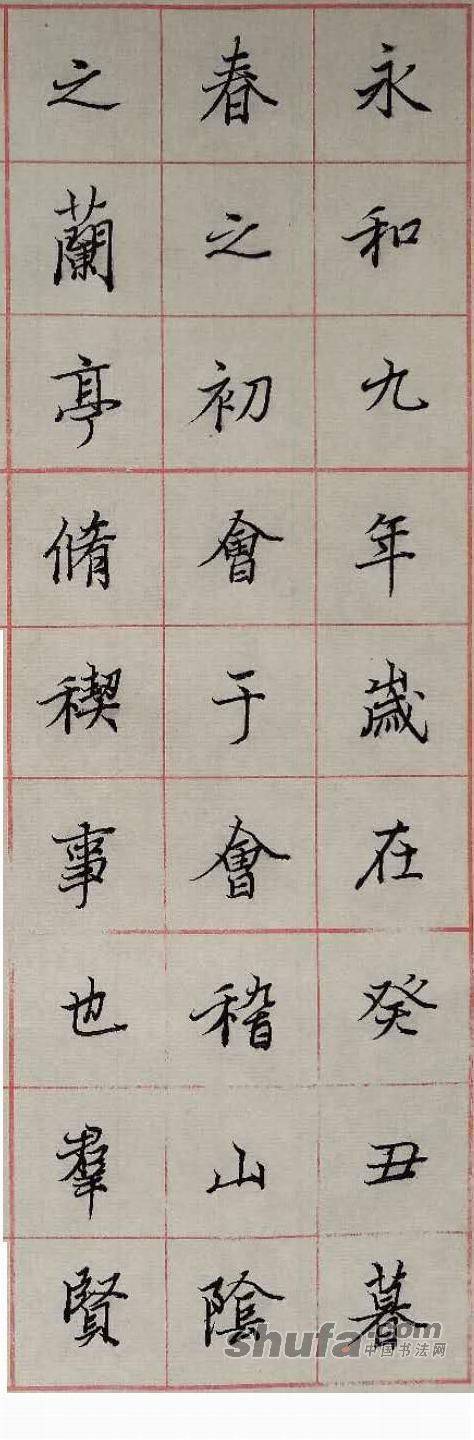 永和九年歲在癸丑暮
春之初會于會稽山陰
之蘭亭脩稧事也羣賢
shufa.com
中国书法网